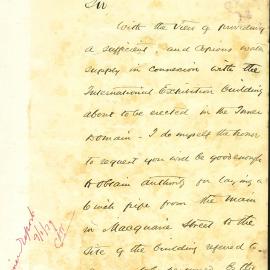 Sir
With the view of providing
a sufficient, and copious water
supply in connexion with the
International Exhibition building
about to be erected in the Inner
Domain - I do myself the honor
to request you will be good enough
to obtain authority for laying a
6 inch pipe from the main
in Macquarie Street to the
site of the building referred to